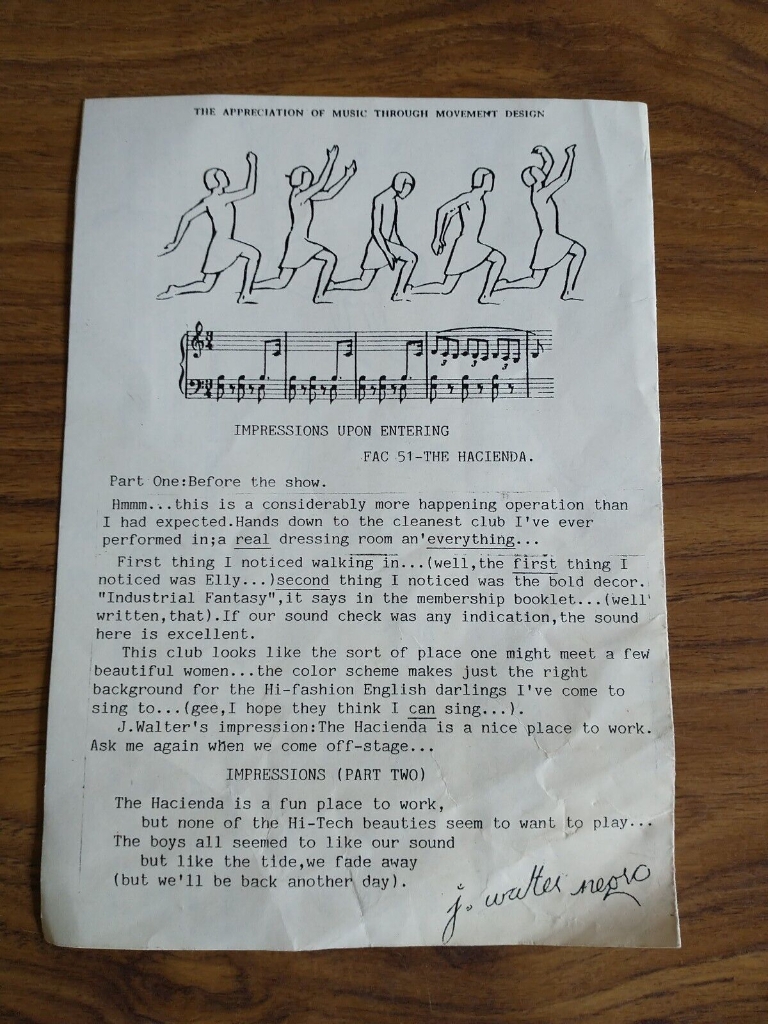 THE APPRECIATION OF MUSIC THROUGH MOVEMENT DESIGN
3 3 3
IMPRESSIONS UPON ENTERING
FAC 51-THE HACIENDA.
Part One:Before the show.
Hmmm...this is a considerably more happening operation than
I had expected.Hands down to the cleanest club I've ever
performed in;a real dressing room an'everything...
First thing I noticed walking in...(well,the first thing I
noticed was Elly...)second thing I noticed was the bold decor.
"Industrial Fantasy",it says in the membership booklet...(well'
written,that).If our sound check was any indication,the sound
here is excellent.
This club looks like the sort of place one might meet a few
beautiful women...the color scheme makes just the right
background for the Hi-fashion English darlings I've come to
sing to...(gee,I hope they think I can sing...).
J.Walter's impression:The Hacienda is a nice place to work.
Ask me again when we come off-stage...
IMPRESSIONS (PART TWO)
The Hacienda is a fun place to work,
but none of the Hi-Tech beauties seem to want to play...
The boys all seemed to like our sound
but like the tide,we fade away
(but we'll be back another day).
j. walter negro